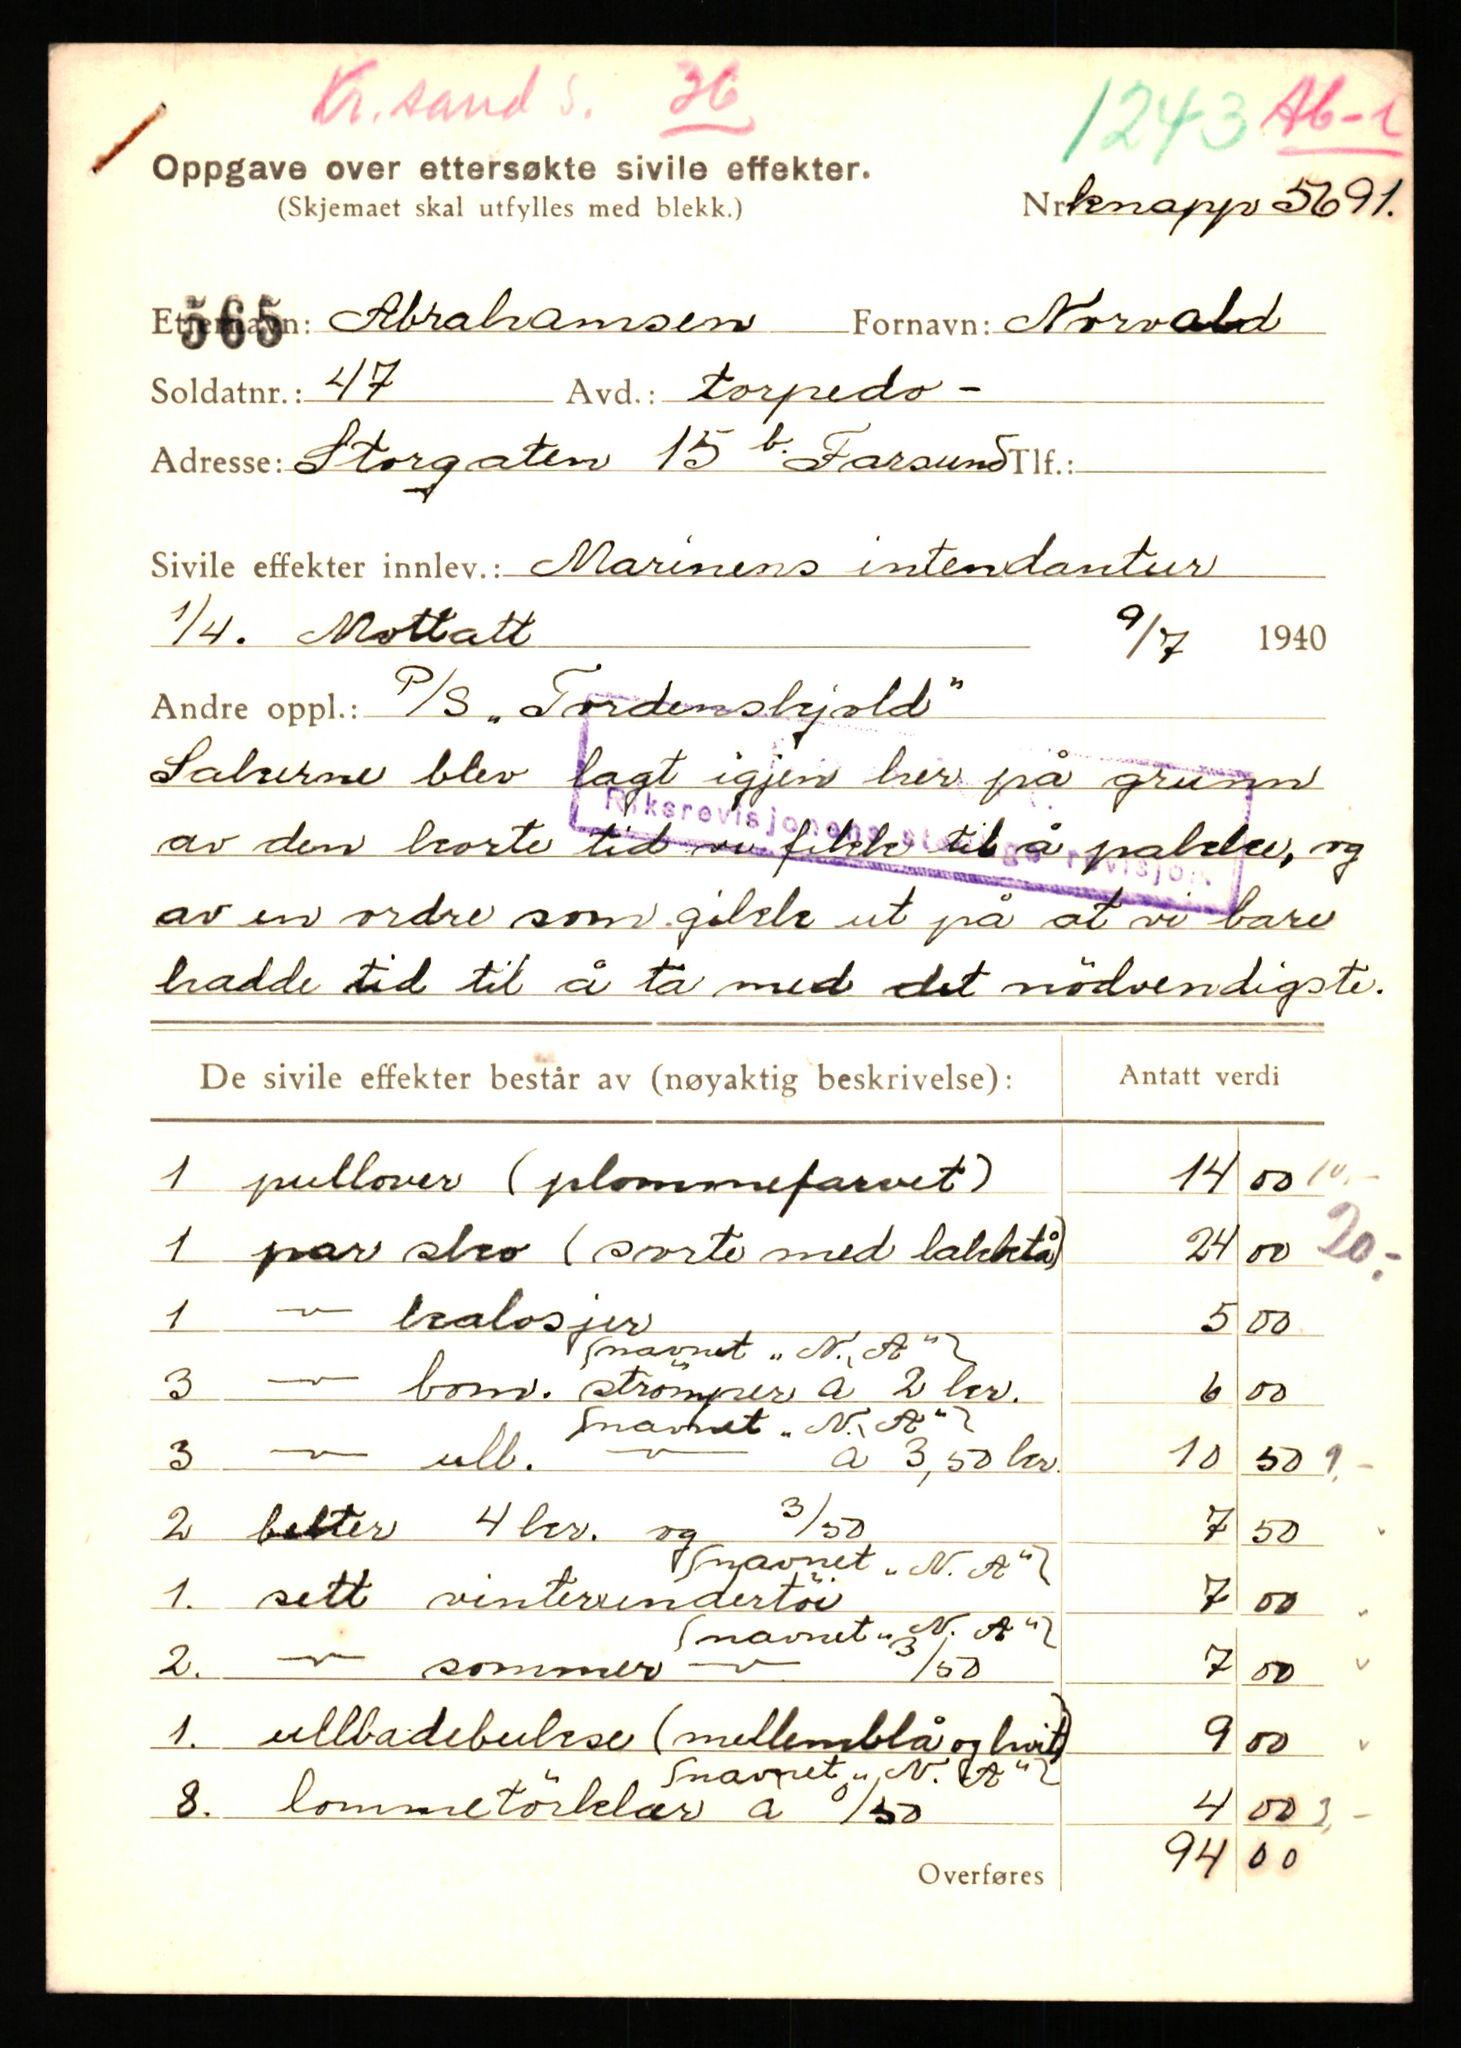 Kr.sand S. 36 1243 Ab-1
Oppgave over ettersøkte sivile effekter.
(Skjemaet skal utfylles med blekk.)
Nr knapp 5691.
565
Etternavn: Abrahamsen Fornavn: Norvald
Soldatnr.: 47 Avd.: torpedo -
Adresse: Storgaten 15 b. Farsund Tlf.:
Sivile effekter innlev.: Marinens intendantur
1/4. Mottatt 9/7 1940
Andre oppl.: P/S „Tordenskjold"
Sakerne blev lagt igjen her på grunn
Riksrevisjonens stedlige revisjon.
av den korte tid vi fikk til å pakke, og
av en ordre som gikk ut på at vi bare
hadde tid til å ta med det nödvendigste.
De sivile effekter består av (nøyaktig beskrivelse): Antatt verdi
1 pullover (plommefarvet) 14 00 10,-
1 par sko (sorte med lakktå) 24 00 20,-
1 -"- kalosjer 5 00
{navnet „N. A"}
3 -"- bom. strömper à 2 kr. 6 00
{navnet „N. A"}
3 -"- ull. -"- à 3,50 kr. 10 50 9,-
2 belter 4 kr. og 3/50 7 50
{navnet „N. A"}
1. sett vinterundertöi 7 00
{navnet „N. A"}
2. -"- sommer -"- 3/50 7 00
1. ullbadebukse (mellemblå og hvit) 9 00
{navnet „N. A"}
8. lommetörklær à 0/50 4 00 3,-
Overføres 94 00